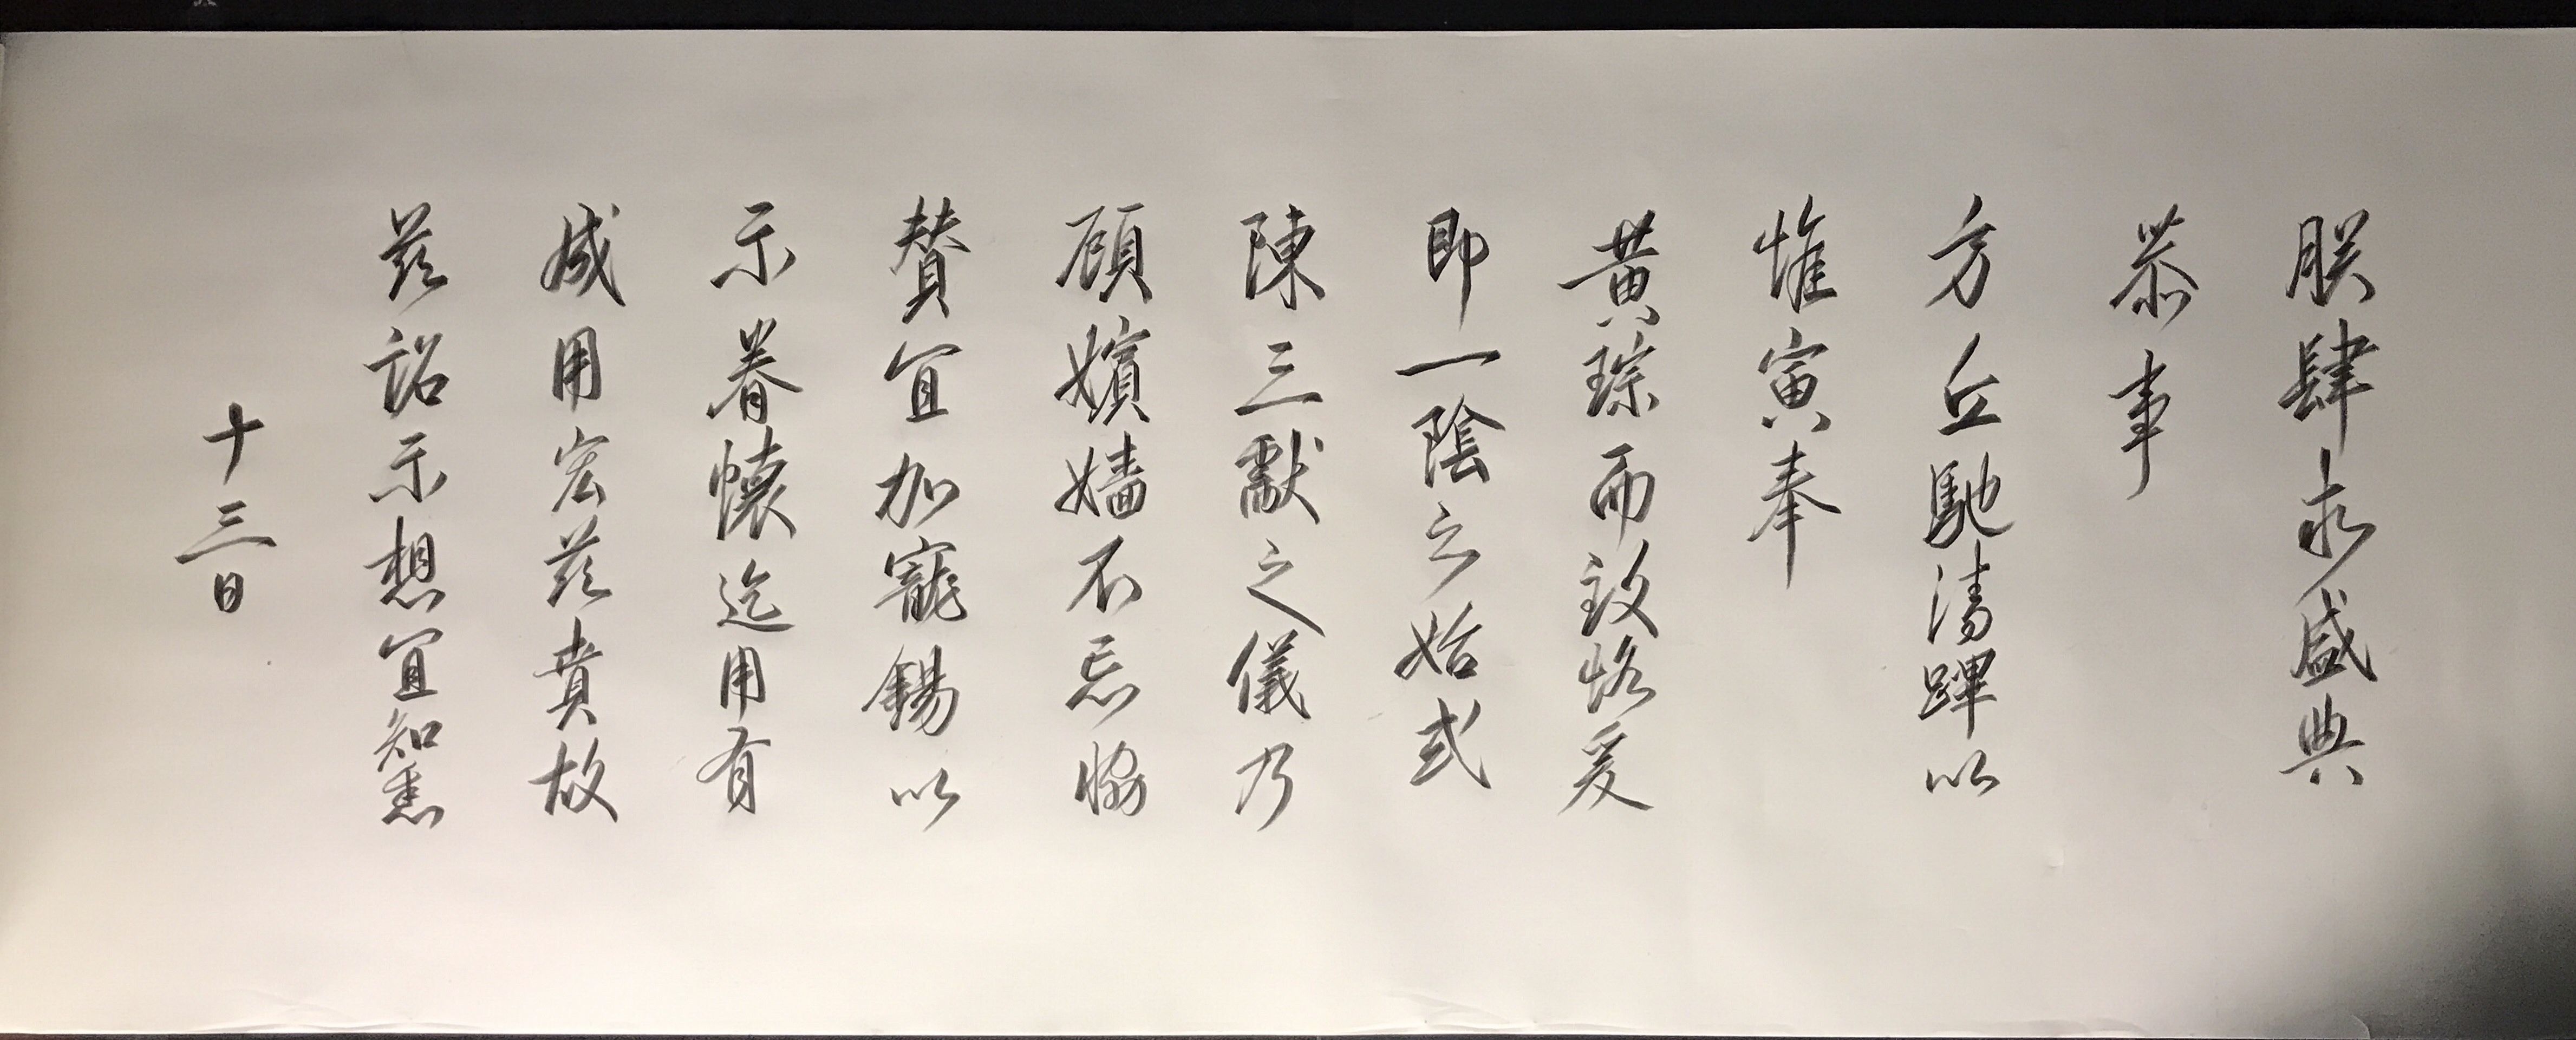 朕肆求盛典
恭事
方丘馳清蹕以
惟寅奉
黃琮而致恪爰
即一陰之始式
陳三獻之儀乃
顧嬪嬙不忘協
賛宜加寵錫以
示眷懷迄用有
成用宏茲賁故
茲詔示想宜知悉
十三日